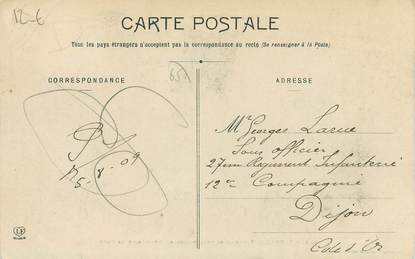 12-€
CARTE POSTALE
Tous les pays étrangers n'acceptent pas la correspondance au recto (Se renseigner à la Poste)
CORRESPONDANCE
ADRESSE
Mr Georges Larue
Sous officier
27em Regiment Infanterie
12e Compagnie
Dijon
Côte d'Or